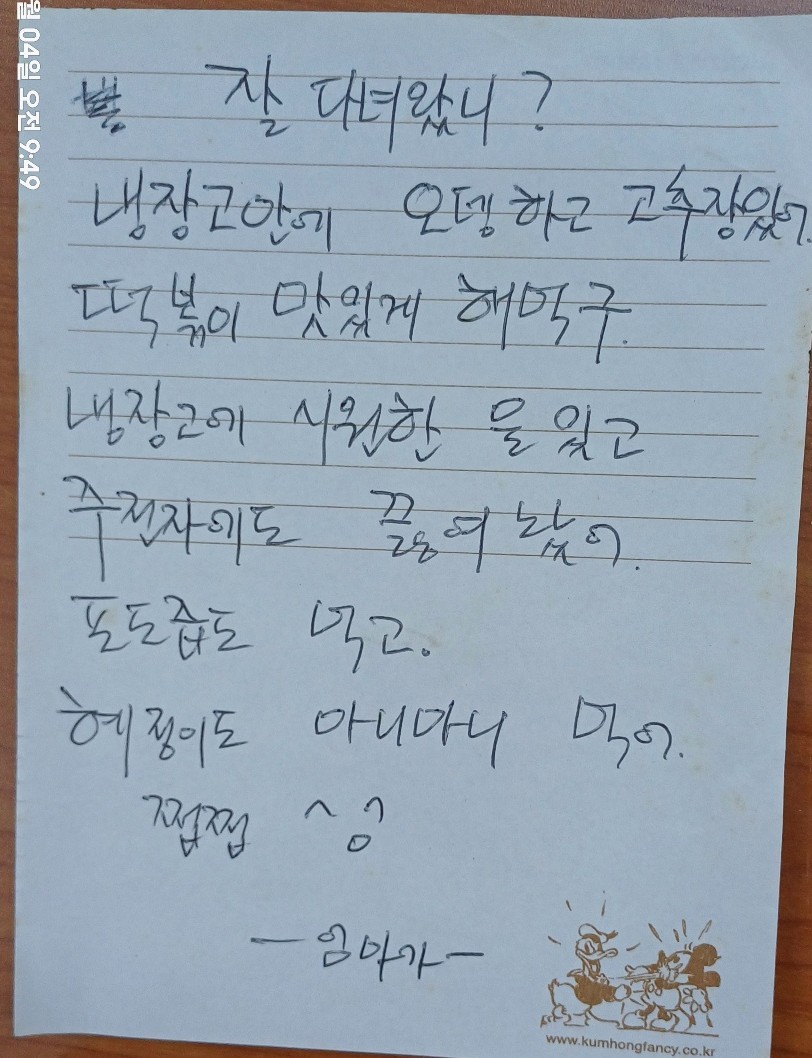 월 04일 오전 9:49
잘 다녀왔니?
냉장고안에 오뎅하고 고추장있어.
떡볶이 맛있게 해먹구.
냉장고에 시원한 물 있고
주전자에도 끓여 놨어.
포도즙도 먹고.
혜정이도 마니마니 먹어.
쩝쩝 ^ㅇ^
-엄마가-
www.kumhongfancy.co.kr